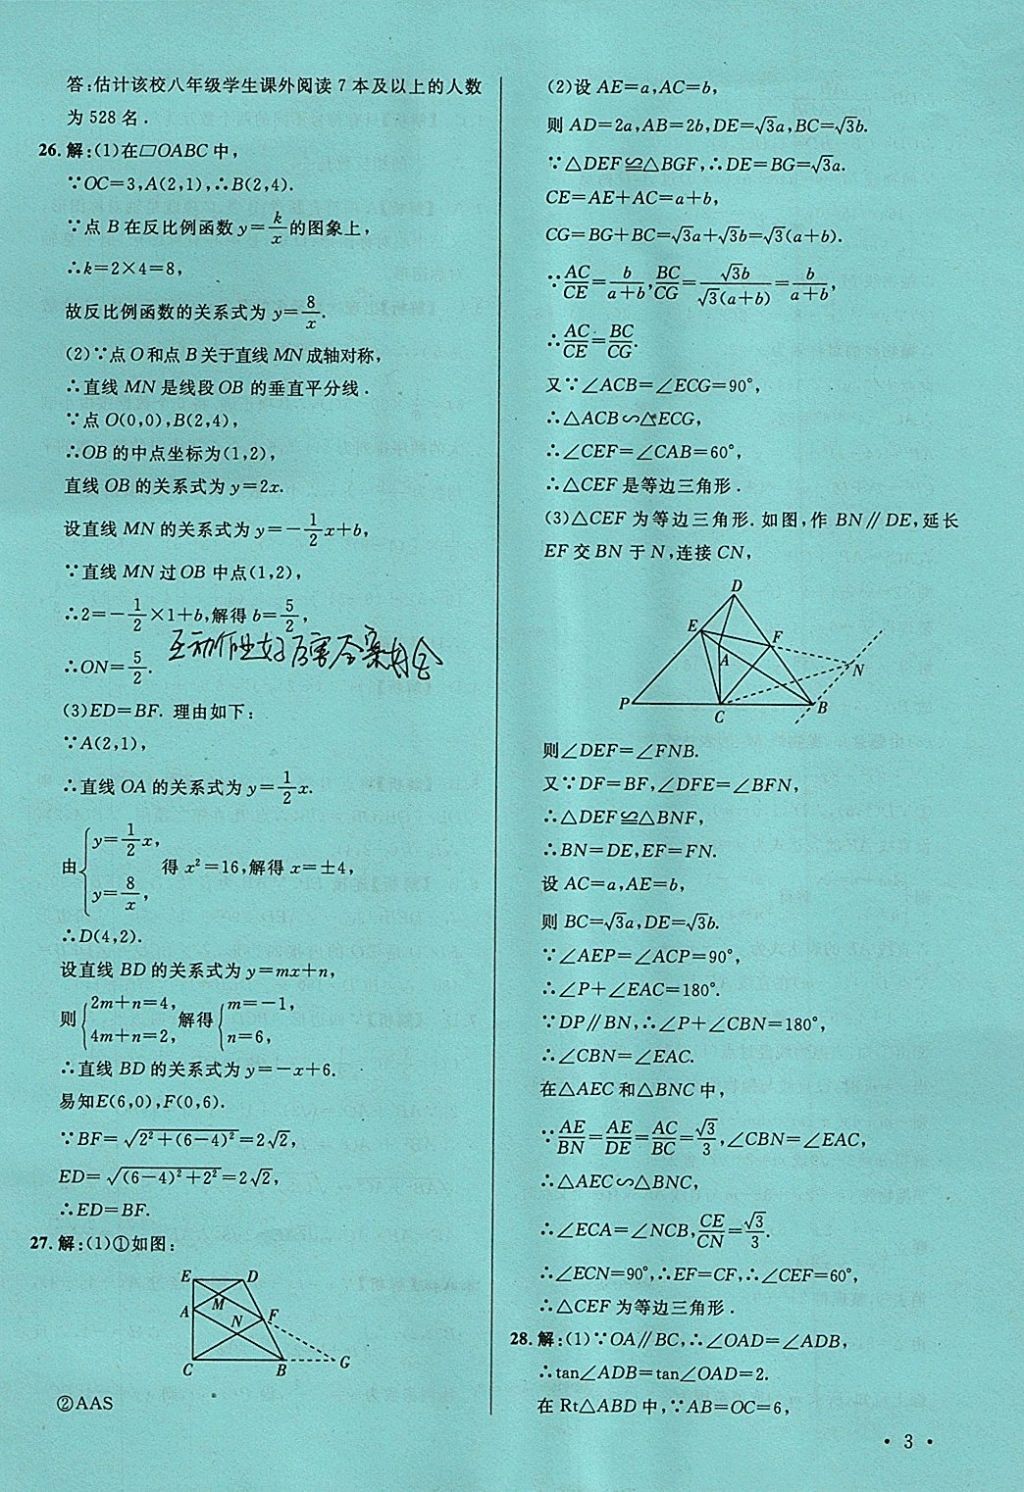 答:估计该校八年级学生课外阅读 7 本及以上的人数
为 528 名.
26. 解:(1)在□OABC 中,
∵OC=3,A(2,1),∴B(2,4).
∵点 B 在反比例函数 y=k/x 的图象上,
∴k=2×4=8,
故反比例函数的关系式为 y=8/x.
(2)∵点 O 和点 B 关于直线 MN 成轴对称,
∴直线 MN 是线段 OB 的垂直平分线.
∵点 O(0,0),B(2,4),
∴OB 的中点坐标为(1,2),
直线 OB 的关系式为 y=2x.
设直线 MN 的关系式为 y=-1/2x+b,
∵直线 MN 过 OB 中点(1,2),
∴2=-1/2×1+b,解得 b=5/2,
∴ON=5/2.
(3)ED=BF. 理由如下:
∵A(2,1),
∴直线 OA 的关系式为 y=1/2x.
由{y=1/2x, y=8/x, 得 x²=16,解得 x=±4,
∴D(4,2).
设直线 BD 的关系式为 y=mx+n,
则{2m+n=4, 4m+n=2, 解得{m=-1, n=6,
∴直线 BD 的关系式为 y=-x+6.
易知E(6,0),F(0,6).
∵BF=√(2²+(6-4)²)=2√2,
ED=√((6-4)²+2²)=2√2,
∴ED=BF.
27. 解:(1)①如图:
E D
M
A N F
C B G
②AAS
(2)设 AE=a,AC=b,
则 AD=2a,AB=2b,DE=√3a,BC=√3b.
∵△DEF≌△BGF,∴DE=BG=√3a.
CE=AE+AC=a+b,
CG=BG+BC=√3a+√3b=√3(a+b).
∵AC/CE=b/(a+b),BC/CG=√3b/(√3(a+b))=b/(a+b)
∴AC/CE=BC/CG.
又∵∠ACB=∠ECG=90°,
∴△ACB∽△ECG,
∴∠CEF=∠CAB=60°,
∴△CEF 是等边三角形.
(3)△CEF 为等边三角形. 如图,作 BN∥DE,延长
EF 交 BN 于 N,连接 CN,
D
E F
A N
P C B
则∠DEF=∠FNB.
又∵DF=BF,∠DFE=∠BFN,
∴△DEF≌△BNF,
∴BN=DE,EF=FN.
设 AC=a,AE=b,
则 BC=√3a,DE=√3b.
∵∠AEP=∠ACP=90°,
∴∠P+∠EAC=180°.
∵DP∥BN,∴∠P+∠CBN=180°,
∴∠CBN=∠EAC.
在△AEC 和△BNC 中,
∵AE/BN=AE/DE=AC/BC=√3/3,∠CBN=∠EAC,
∴△AEC∽△BNC,
∴∠ECA=∠NCB,CE/CN=√3/3.
∴∠ECN=90°,∴EF=CF,∴∠CEF=60°,
∴△CEF 为等边三角形.
28. 解:(1)∵OA∥BC,∴∠OAD=∠ADB,
∴tan∠ADB=tan∠OAD=2.
在 Rt△ABD 中,∵AB=OC=6,
• 3 •